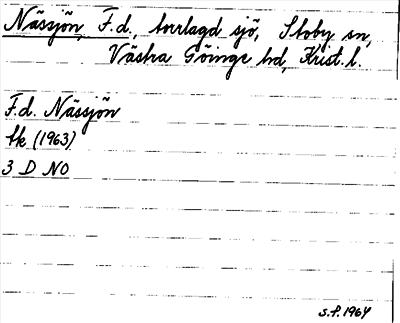 Nässjön, F.d., torrlagd sjö, Stoby sn,
Västra Göinge hd, Krist. l.
F.d. Nässjön
tk (1963)
3 D NO
S.F. 1964